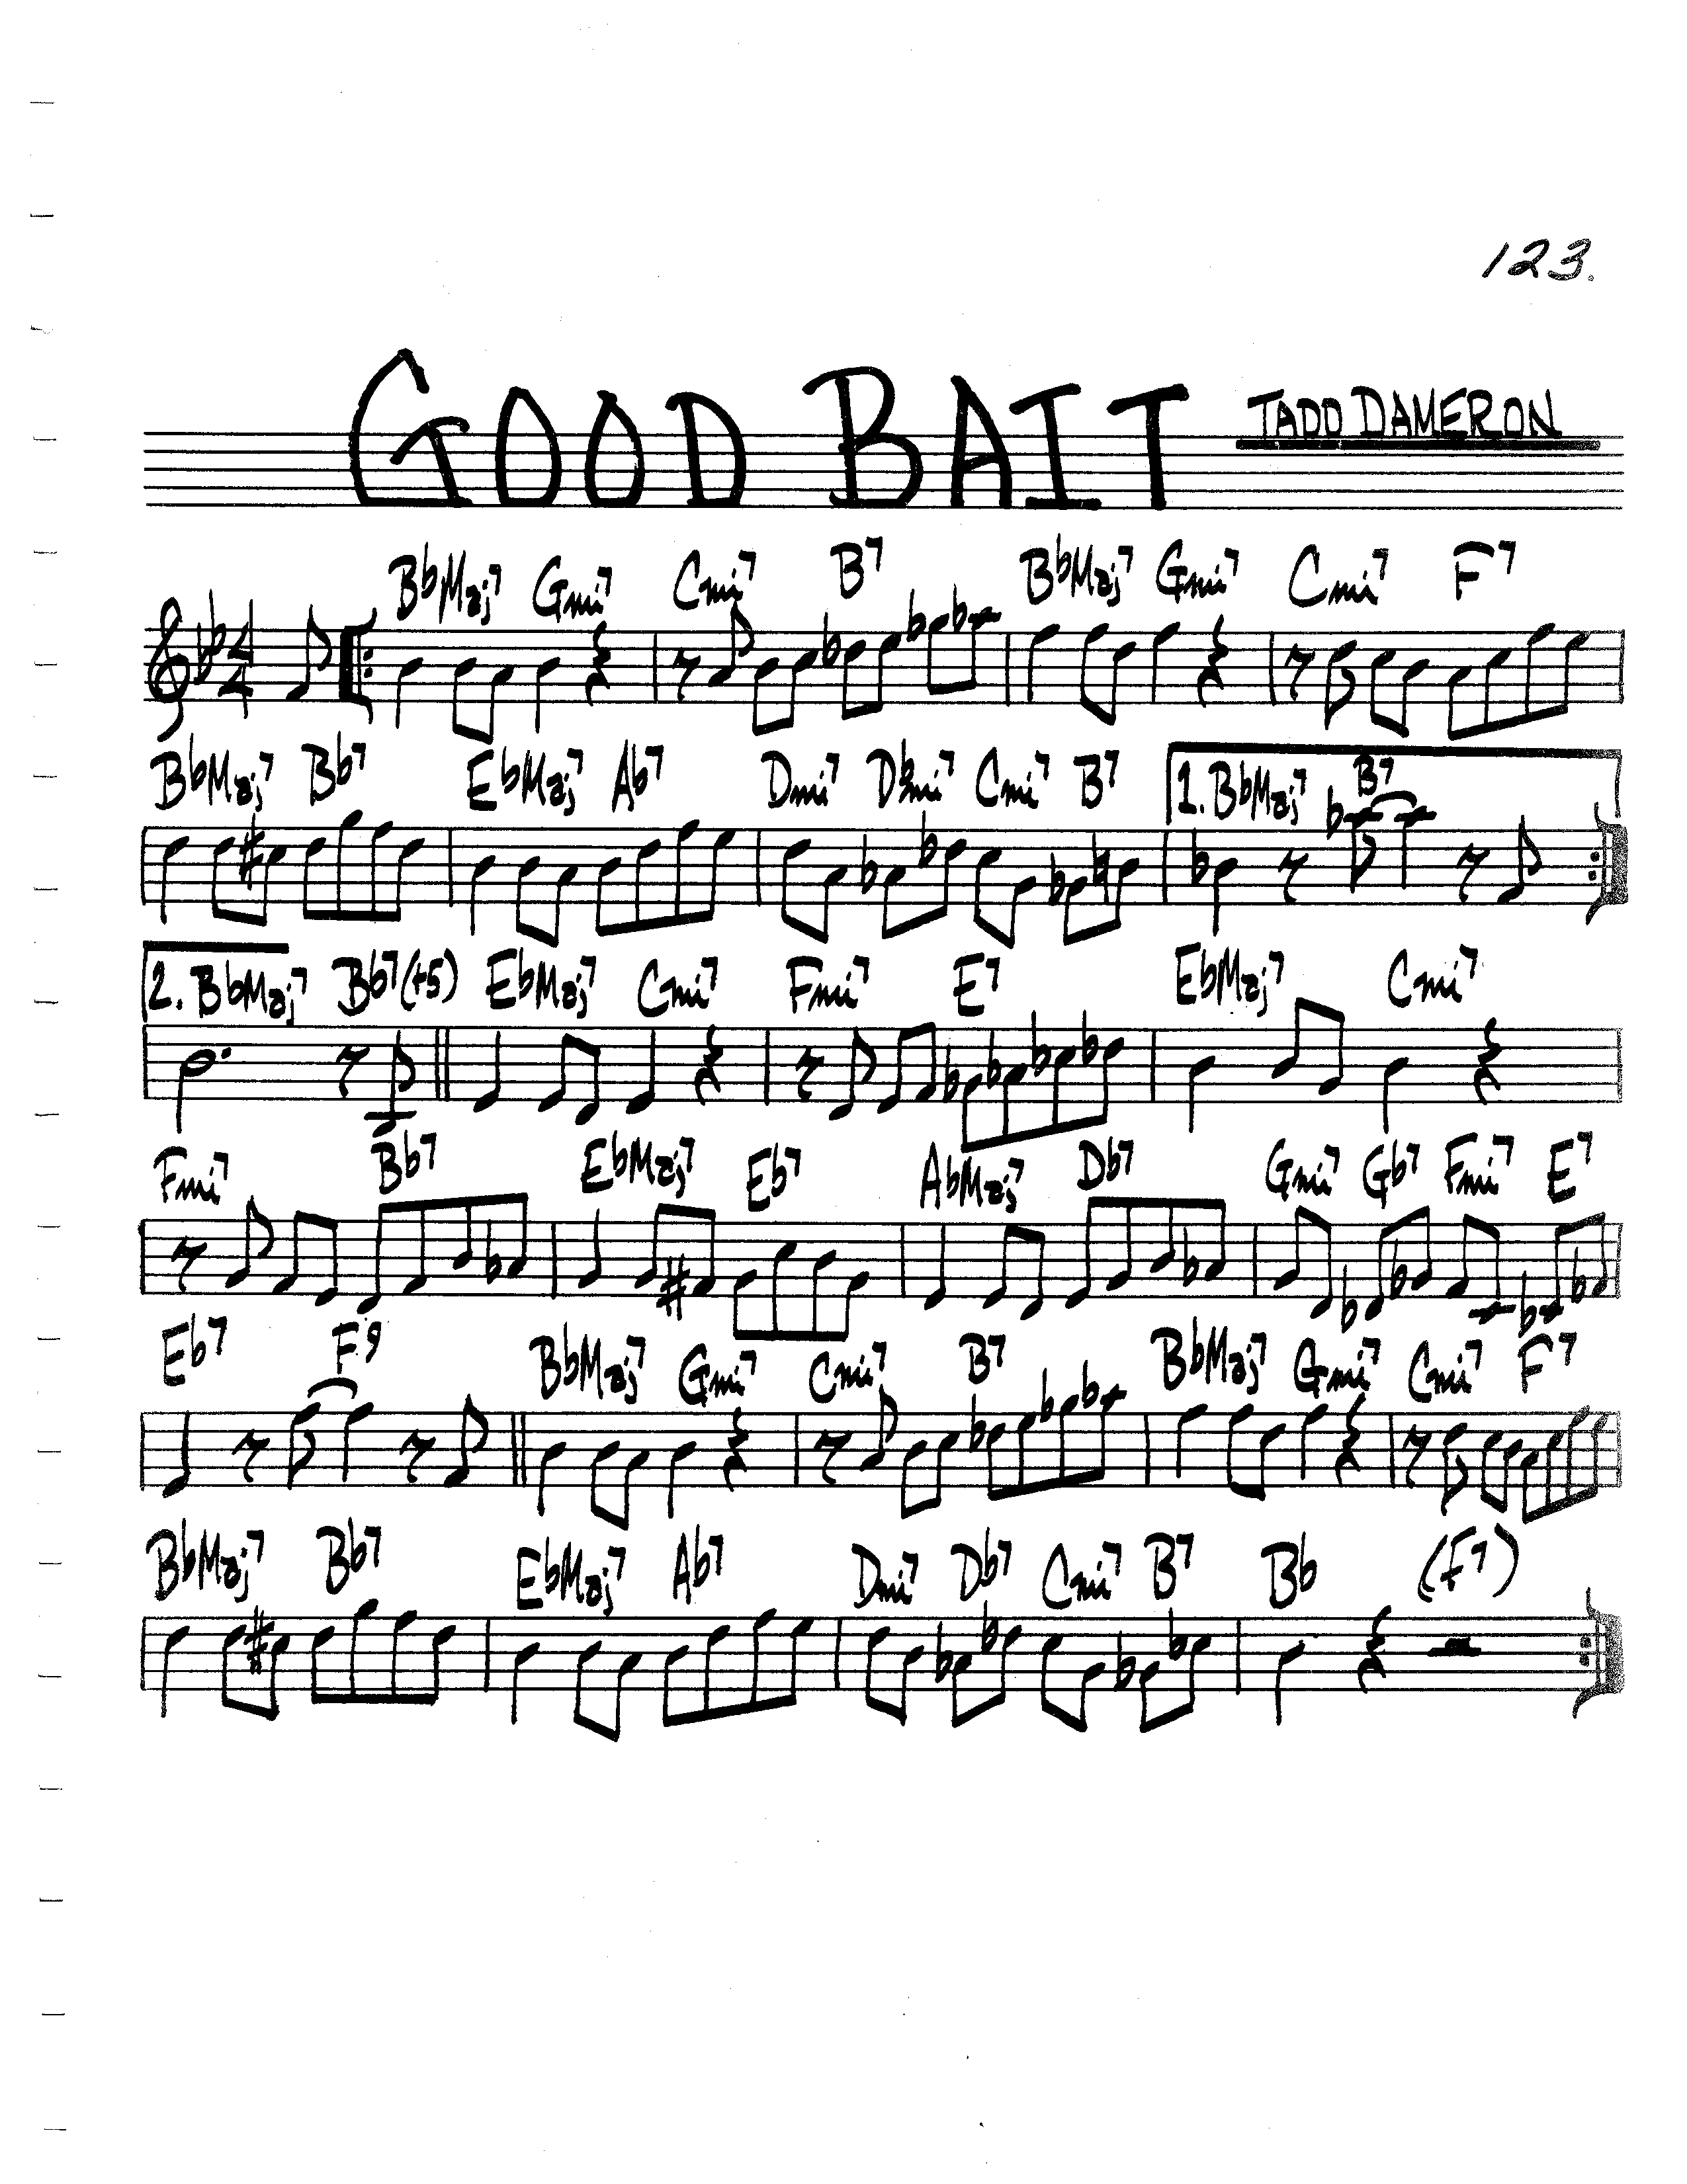 123.
GOOD BAIT TADD DAMERON
BbMaj7 Gmi7 Cmi7 B7 BbMaj7 Gmi7 Cmi7 F7
4/4
BbMaj7 Bb7 EbMaj7 Ab7 Dmi7 Dbmi7 Cmi7 B7 1. BbMaj7 B7
2. BbMaj7 Bb7(+5) EbMaj7 Cmi7 Fmi7 E7 EbMaj7 Cmi7
Fmi7 Bb7 EbMaj7 Eb7 AbMaj7 Db7 Gmi7 Gb7 Fmi7 E7
Eb7 F9 BbMaj7 Gmi7 Cmi7 B7 BbMaj7 Gmi7 Cmi7 F7
BbMaj7 Bb7 EbMaj7 Ab7 Dmi7 Db7 Cmi7 B7 Bb (F7)